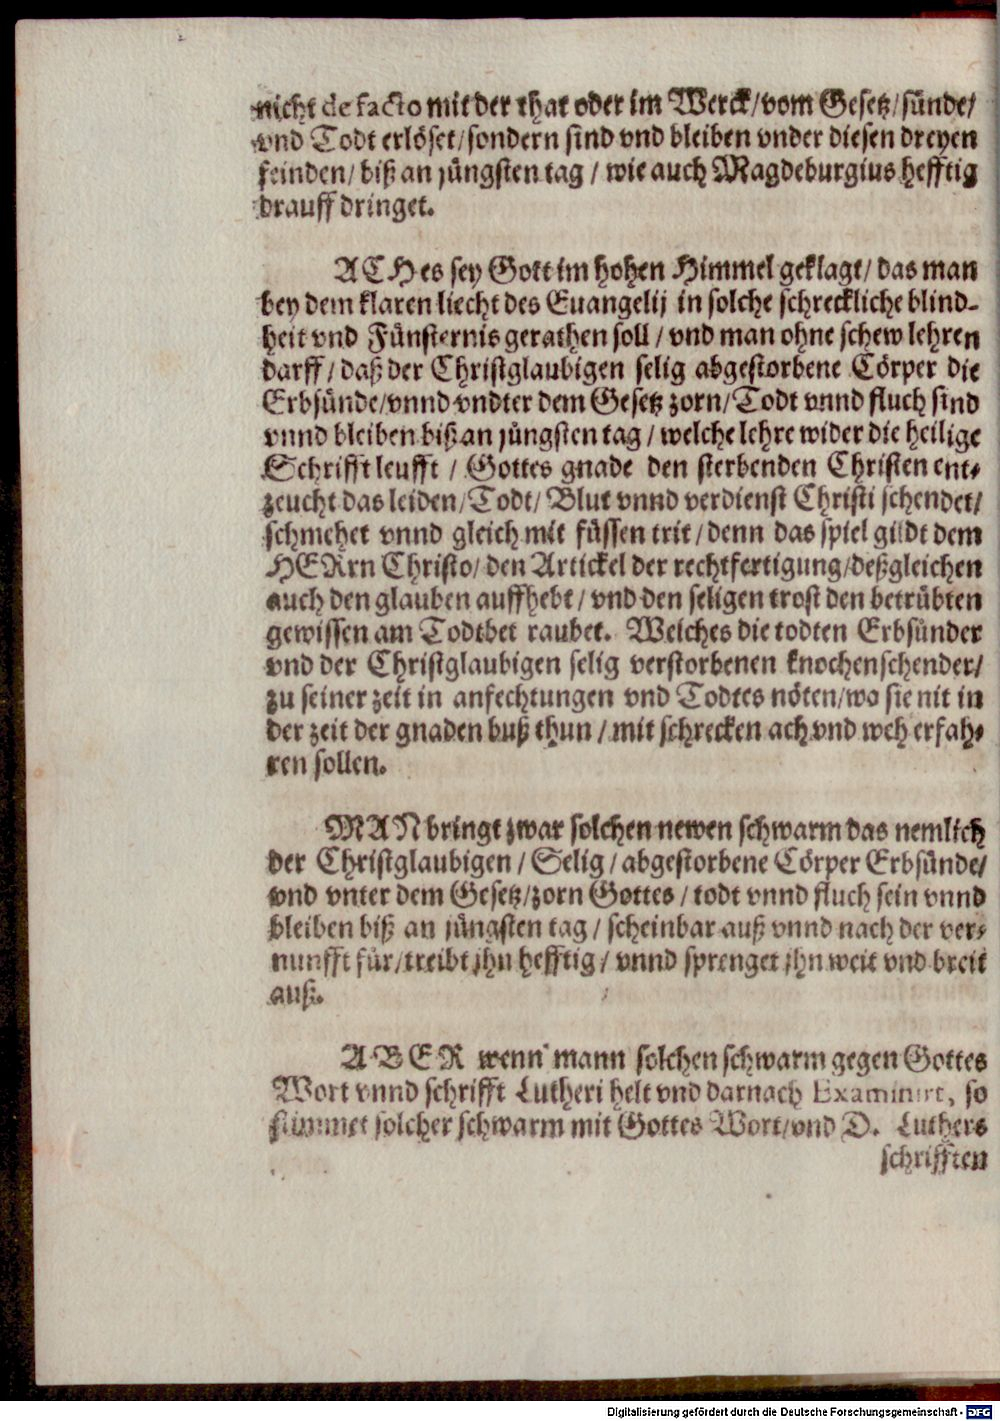 nicht de facto mit der that oder im Werck/vom Gesetz/sünde/
vnd Todt erlöset/sondern sind vnd bleiben vnder diesen dreyen
feinden/ biß an jüngsten tag / wie auch Magdeburgius hefftig
drauff dringet.
ACH es sey Gott im hohen Himmel geklagt/ das man
bey dem klaren liecht des Euangelij in solche schreckliche blind-
heit vnd Fünsternis gerathen soll / vnd man ohne schew lehren
darff / daß der Christglaubigen selig abgestorbene Cörper die
Erbsünde/vnnd vndter dem Gesetz zorn/Todt vnnd fluch sind
vnnd bleiben biß an jüngsten tag / welche lehre wider die heilige
Schrifft leufft / Gottes gnade den sterbenden Christen ent-
zeucht das leiden/Todt/ Blut vnnd verdienst Christi schendet/
schmehet vnnd gleich mit füssen trit / denn das spiel gildt dem
HERrn Christo/ den Artickel der rechtfertigung/deßgleichen
auch den glauben auffhebt / vnd den seligen trost den betrübten
gewissen am Todtbet raubet. Welches die todten Erbsünder
vnd der Christglaubigen selig verstorbenen knochenschender/
zu seiner zeit in anfechtungen vnd Todtes nöten/wo sie nit in
der zeit der gnaden buß thun / mit schrecken ach vnd weh erfah-
ren sollen.
MAN bringt zwar solchen newen schwarm das nemlich
der Christglaubigen / Selig / abgestorbene Cörper Erbsünde/
vnd vnter dem Gesetz/zorn Gottes / todt vnnd fluch sein vnnd
bleiben biß an jüngsten tag / scheinbar auß vnnd nach der ver-
nunfft für/treibt jhn hefftig / vnnd sprenget jhn weit vnd breit
auß.
ABER wenn mann solchen schwarm gegen Gottes
Wort vnnd schrifft Lutheri helt vnd darnach Examinirt, so
stimmet solcher schwarm mit Gottes Wort/vnd D. Luthers
schrifften
Digitalisierung gefördert durch die Deutsche Forschungsgemeinschaft - DFG